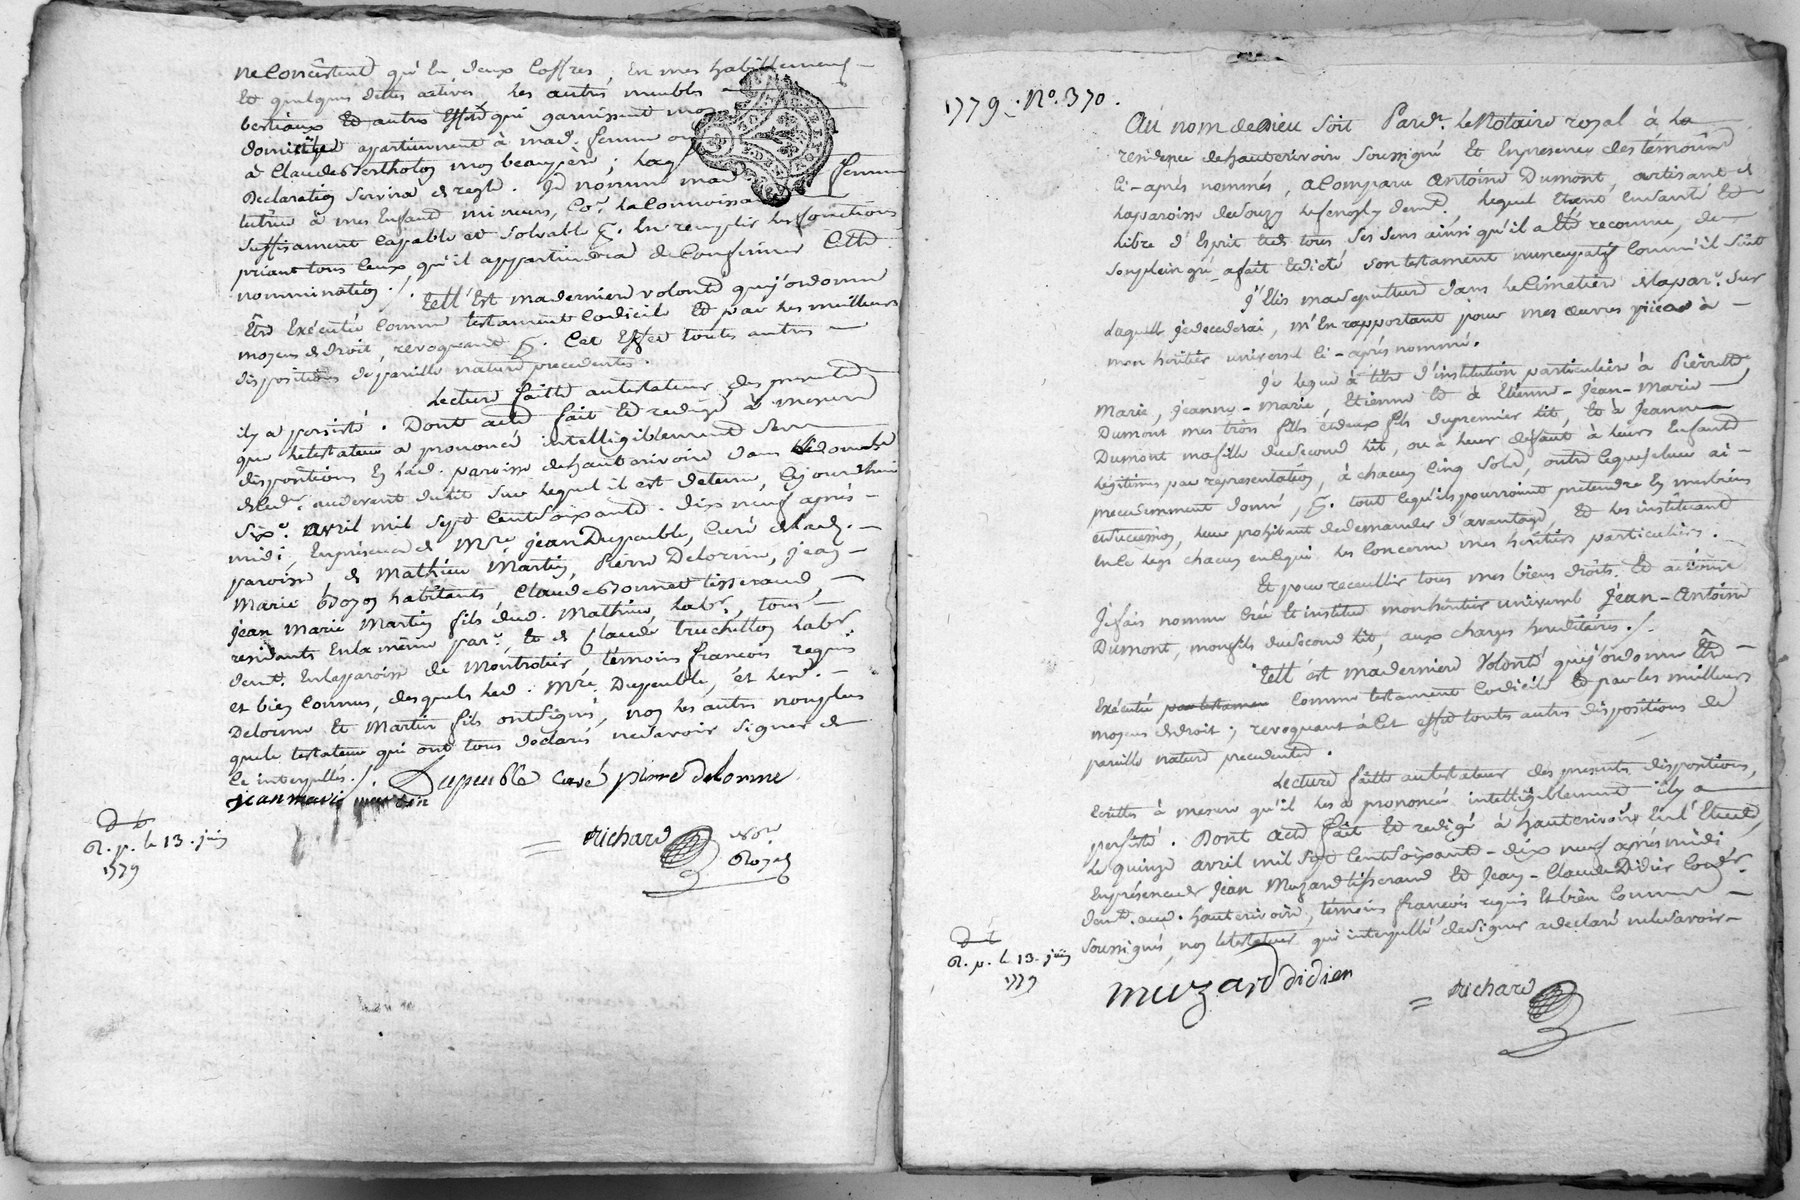 ne Concistent qu'En deux Coffres, En mes habillements
Et quelques dettes actives. Les autres meubles
bestiaux Et autres Effets qui garnissent mon
domicile apartiennent à mad. femme ou
à Claude Bertholon mon beaupère;
Declaration servira de regle. Je nomme mad. femme
tutrice à mes Enfants mineurs, la Connoissant
suffisament Capable et solvable p. En remplir les fonctions
priant tous Ceux qu'il appartiendra de Confirmer Cette
nommination ./.
Telle Est ma derniere volonté que j'ordonne
Être Exécutée Comme testament Codicile Et par les meilleurs
moyens de droit, revoquant p. Cet Effet toutes autres
dispositions de pareille nature precedentes.
Lecture faitte au testateur des presentes
il y a persisté. Dont acte fait Et redigé à mesure
que le testateur a prononcé intelligiblement ses
dispositions En lad. paroisse de hauterivoire dans le domicile
dud. au devant du lit sur lequel il est detenu, Cejourdhuy
six.e avril mil sept Cent soixante-dix neuf après-
midi, En présence de M.re jean Dupeuble, Curé de lad.
paroisse, de Mathieu Martin, Pierre Delorme, jean
Marie Boyon habitants, Claude Bonnet tisserand,
jean Marie Martin fils dud. Mathieu, lab.r, tous
residants En la même par.e, Et de Claude truchetton lab.r
demt. En la paroisse de Montrotier, témoins francois requis
et bien Connus, desquels led. M.re Dupeuble, et led.
Delorme Et Martin fils ont signé, non les autres non plus
que le testateur qui ont tous declaré ne savoir signer de
Ce interpellés ./. Dupeuble Curé pierre delorme
jean marie martin
Richard No.re
Royal
R. p. le 13. juin
1779
1779. N.o 370.
Au nom de Dieu soit Pard.t Le Notaire royal à la
residence de hauterivoire soussigné Et En presence des témoins
Ci-après nommés, a Comparu Antoine Dumont, artisant de
la paroisse de Souzy demt. Lequel Etant En santé Et
libre d'Esprit Et de tous ses sens ainsi qu'il a Eté reconnu, de
son plein gré a fait Et dicté son testament nuncupatif Comm'il suit
J'Elis ma sepulture dans le Cimetière de la par.e sur
laquelle je decederai, m'En rapportant pour mes œuvres piées à
mon heritier universel Ci-après nommé.
Je legue à titre d'institution particulière à Pierrette
Marie, Jeanne-Marie, Etienne Et à Etienne-Jean-Marie
Dumont mes trois filles et deux fils du premier lit, Et à Jeanne
Dumont ma fille du second lit, ou à leur défaut à leurs Enfants
légitimes par representation, à chacun Cinq sols, outre Ce que je leur ai
precedemment donné, p. tout Ce qu'ils pourroient pretendre En mes biens
et succession, leur prohibant de demander d'avantage, Et les instituant
En Ce legs chacun En Ce qui les Concerne mes heritiers particuliers.
Et pour recueillir tous mes biens droits Et actions
Je fais nomme Crée Et institue mon heritier universel Jean-Antoine
Dumont, mon fils du second lit, aux charges hereditaires ./.
Tell'est ma derniere Volonté que j'ordonne Être
Exécutée par testamen Comme testament Codicile Et par les meilleurs
moyens de droit; revoquant à Cet effet toutes autres dispositions de
pareille nature precedentes.
Lecture faitte au testateur des presentes dispositions,
Ecrittes à mesure qu'il les a prononcées intelligiblement il y a
persisté. Dont acte fait Et redigé à hauterivoire En l'Etude,
Le quinze avril mil sept Cent soixante-dix neuf après midi
En presence de Jean Muzard tisserand Et Jean-Claude Didier Cord.r
demt. aud. hauterivoire, témoins francois requis Et bien Connus
soussignés, non le testateur qui interpellé de signer a declaré ne le savoir
muzard didier
Richard
R. p. le 13. juin
1779